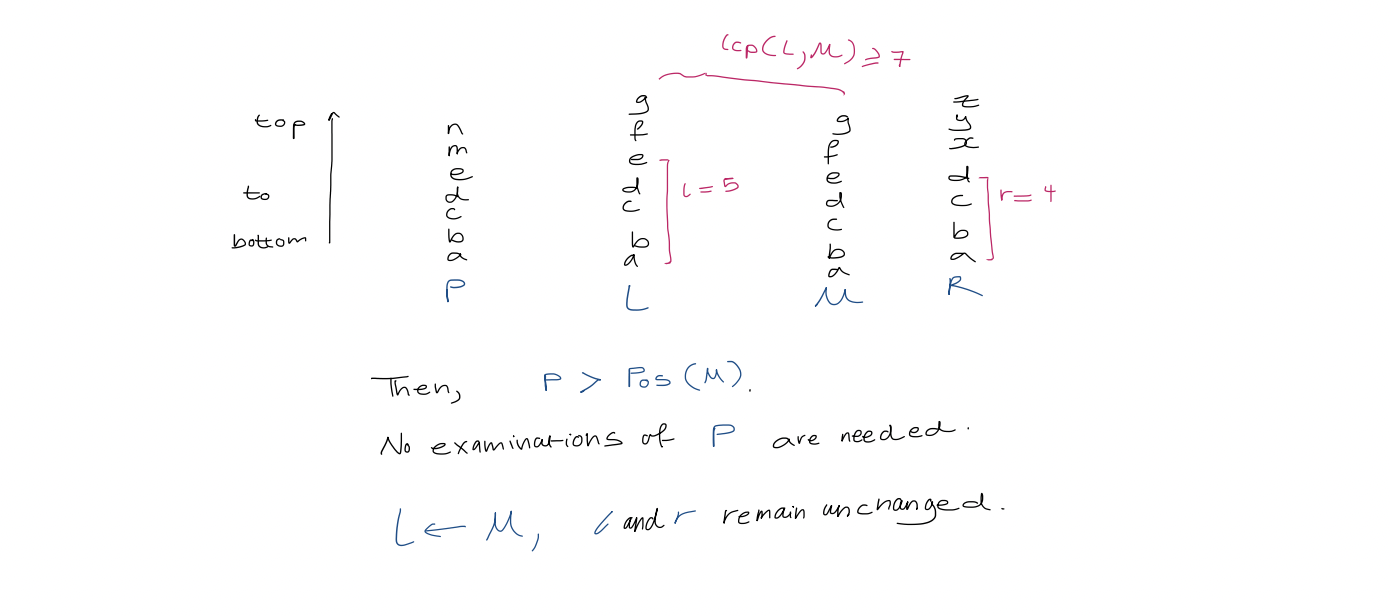 lcp(L,M) ⩾ 7
top
to
bottom
n
m
e
d
c
b
a
P
g
f
e
d
c
b
a
L
l = 5
g
f
e
d
c
b
a
M
z
y
x
d
c
b
a
R
r = 4
Then, P > Pos(M).
No examinations of P are needed.
L ← M, l and r remain unchanged.